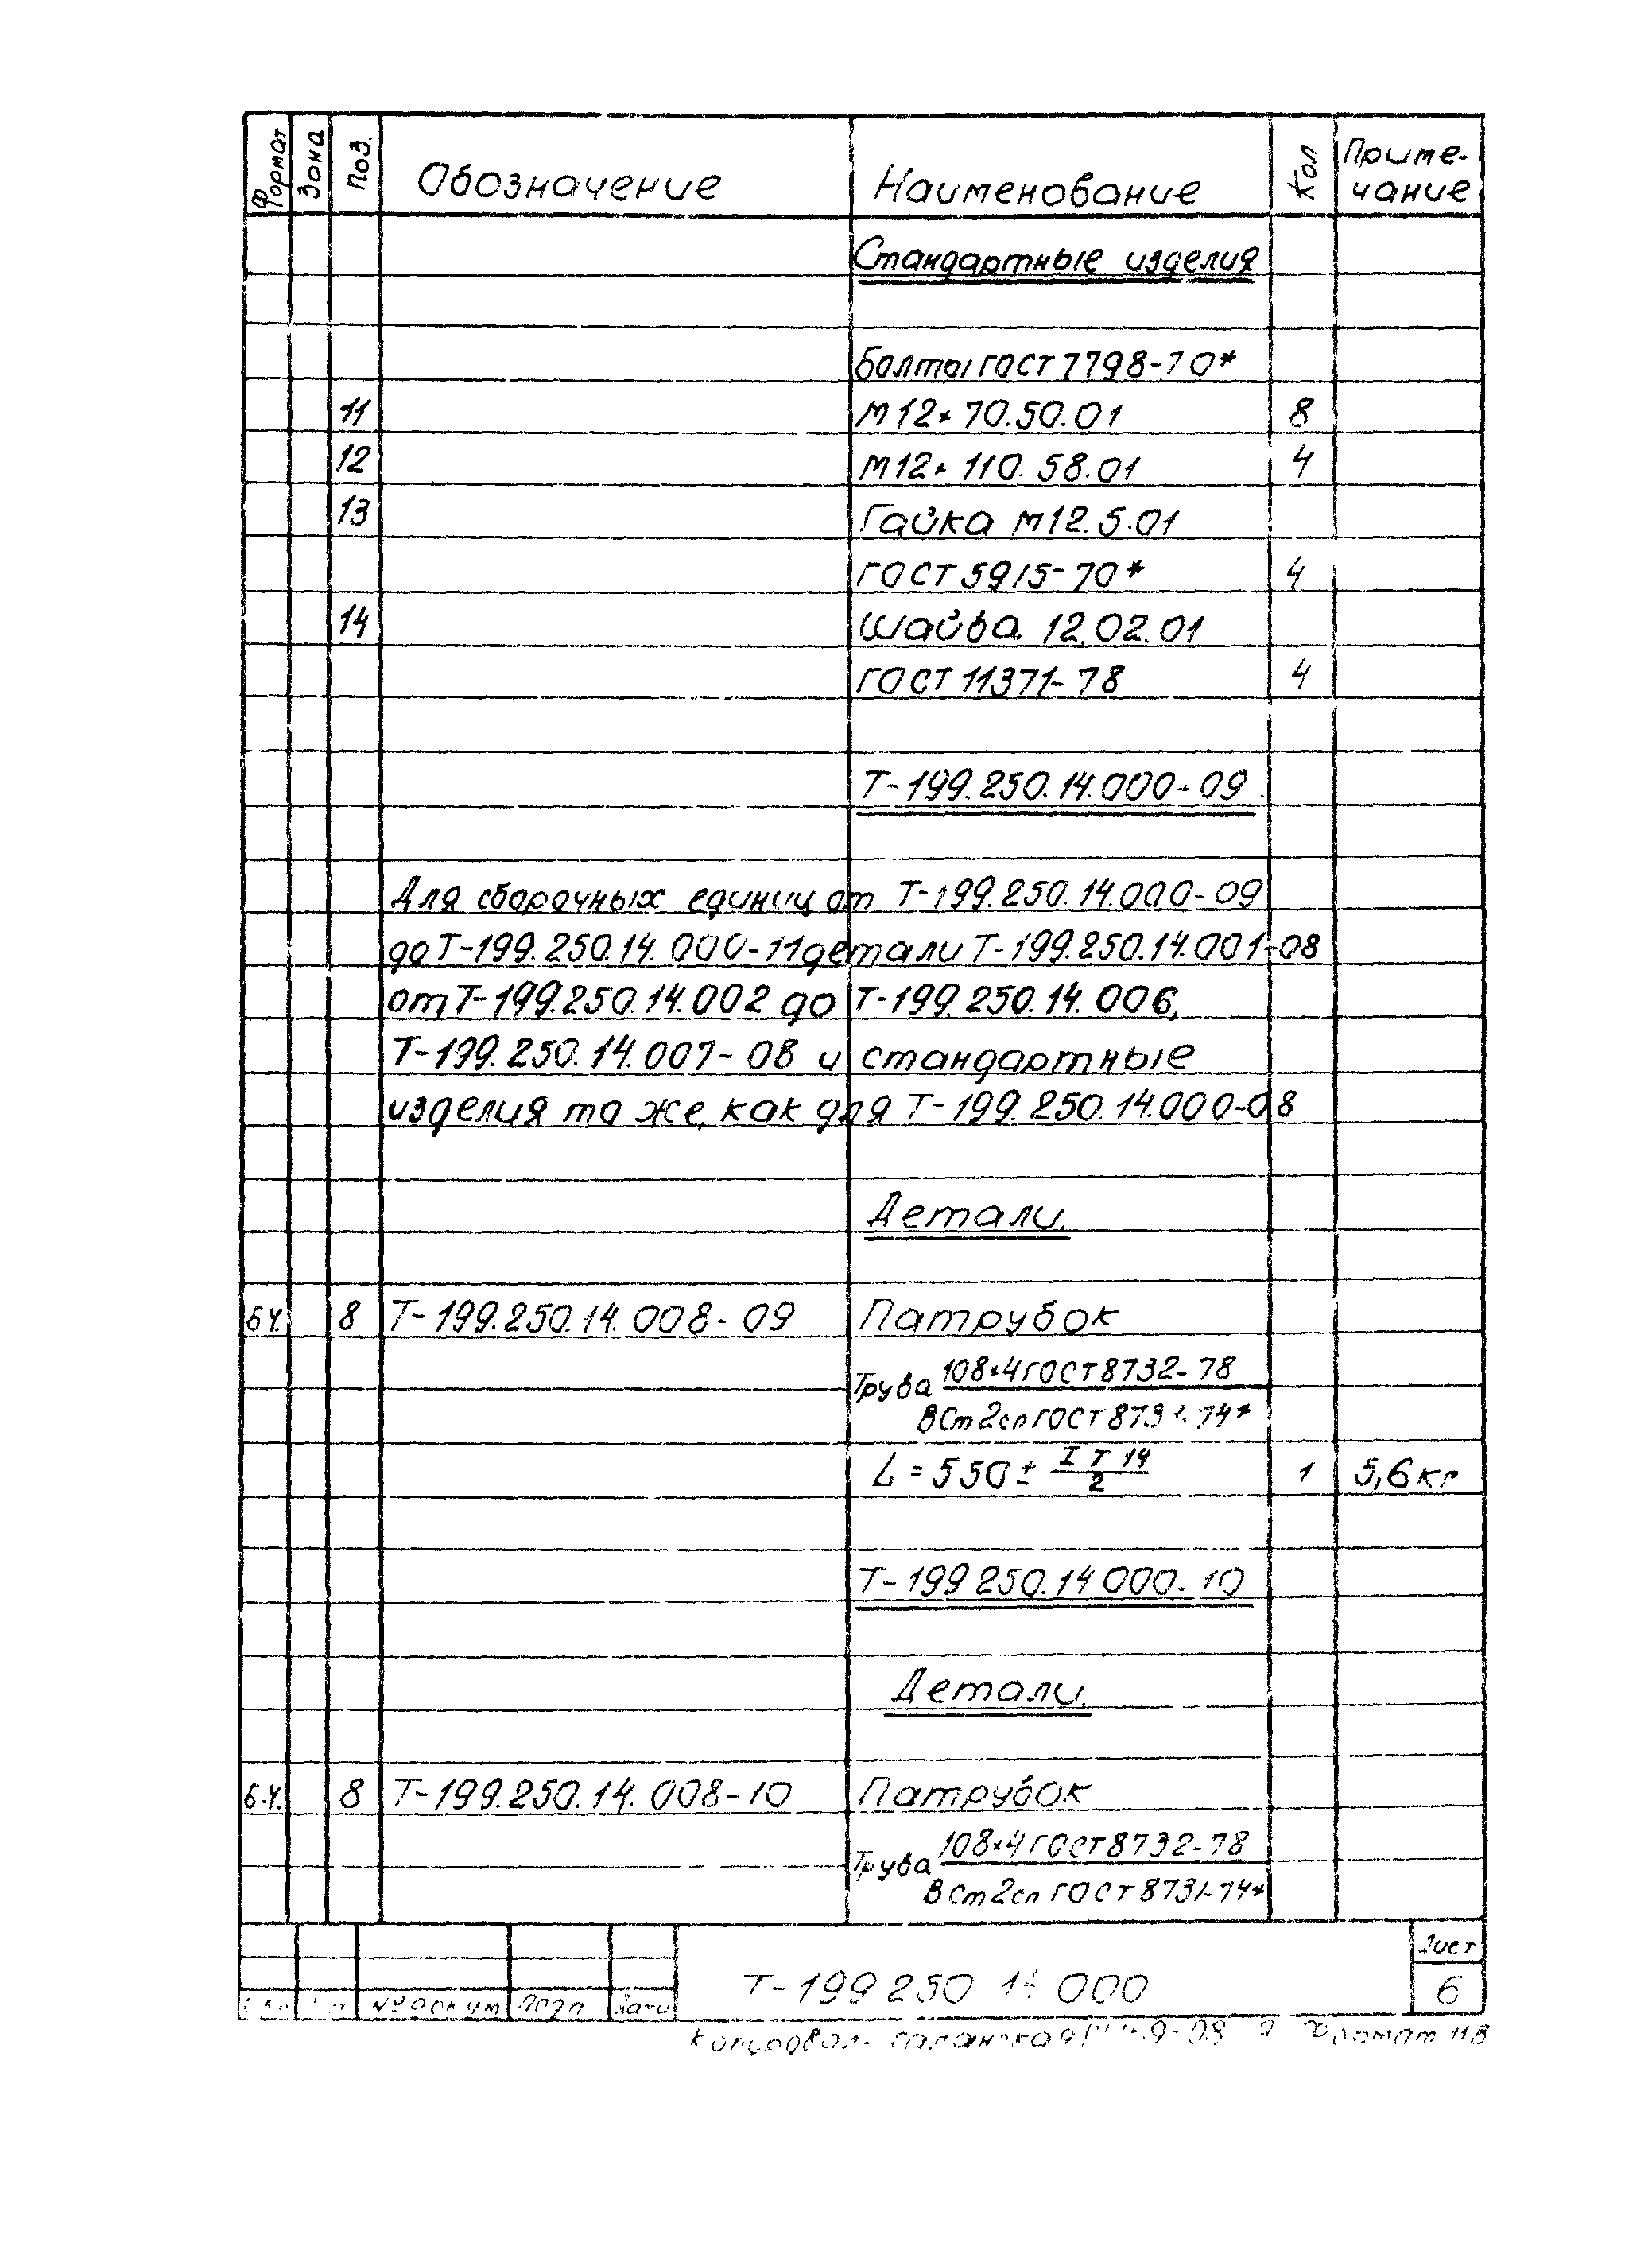 Формат Зона Поз. Обозначение Наименование Кол Приме-
чание
Стандартные изделия
Болты ГОСТ 7798-70*
11 М12×70.50.01 8
12 М12×110.58.01 4
13 Гайка М12.5.01
ГОСТ 5915-70* 4
14 Шайба 12.02.01
ГОСТ 11371-78 4
Т-199.250.14.000-09
Для сборочных единиц от Т-199.250.14.000-09
до Т-199.250.14.000-11 детали Т-199.250.14.001-08
от Т-199.250.14.002 до Т-199.250.14.006,
Т-199.250.14.007-08 и стандартные
изделия то же, как для Т-199.250.14.000-08
Детали.
БЧ. 8 Т-199.250.14.008-09 Патрубок
Труба 108×4 ГОСТ 8732-78
ВСт2сп ГОСТ 8731-74*
L = 550 ± IT14
2 1 5,6 кг
Т-199 250.14 000-10
Детали.
Б.Ч. 8 Т-199.250.14.008-10 Патрубок
Труба 108×4 ГОСТ 8732-78
ВСт2сп ГОСТ 8731-74*
Лист
Т-199 250 14 000 6
№ докум Подп Дата
Копировал Формат 11В